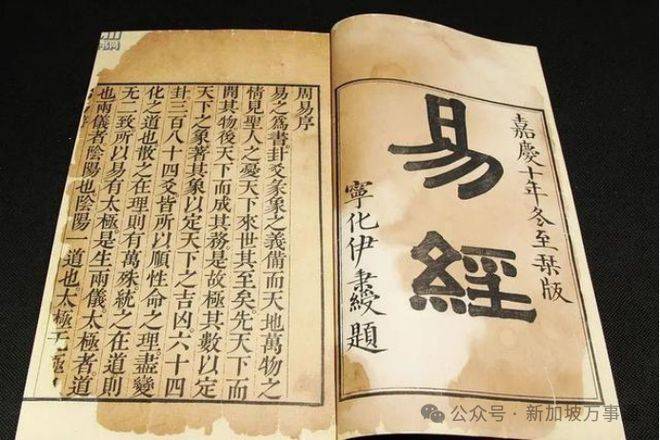 嘉慶十年冬至栞版
易經
寧化伊秉綬題
周易序
易之爲書卦爻彖象之義備而天地萬物之
情見聖人之憂天下來世其至矣先天下而
開其物後天下而成其務是故極其數以定
天下之象著其象以定天下之吉凶六十四
卦三百八十四爻皆所以順性命之理盡變
化之道也散之在理則有萬殊統之在道則
无二致所以易有太極是生兩儀太極者道
也兩儀者陰陽也陰陽一道也太極无極
公众号 · 新加坡万事通